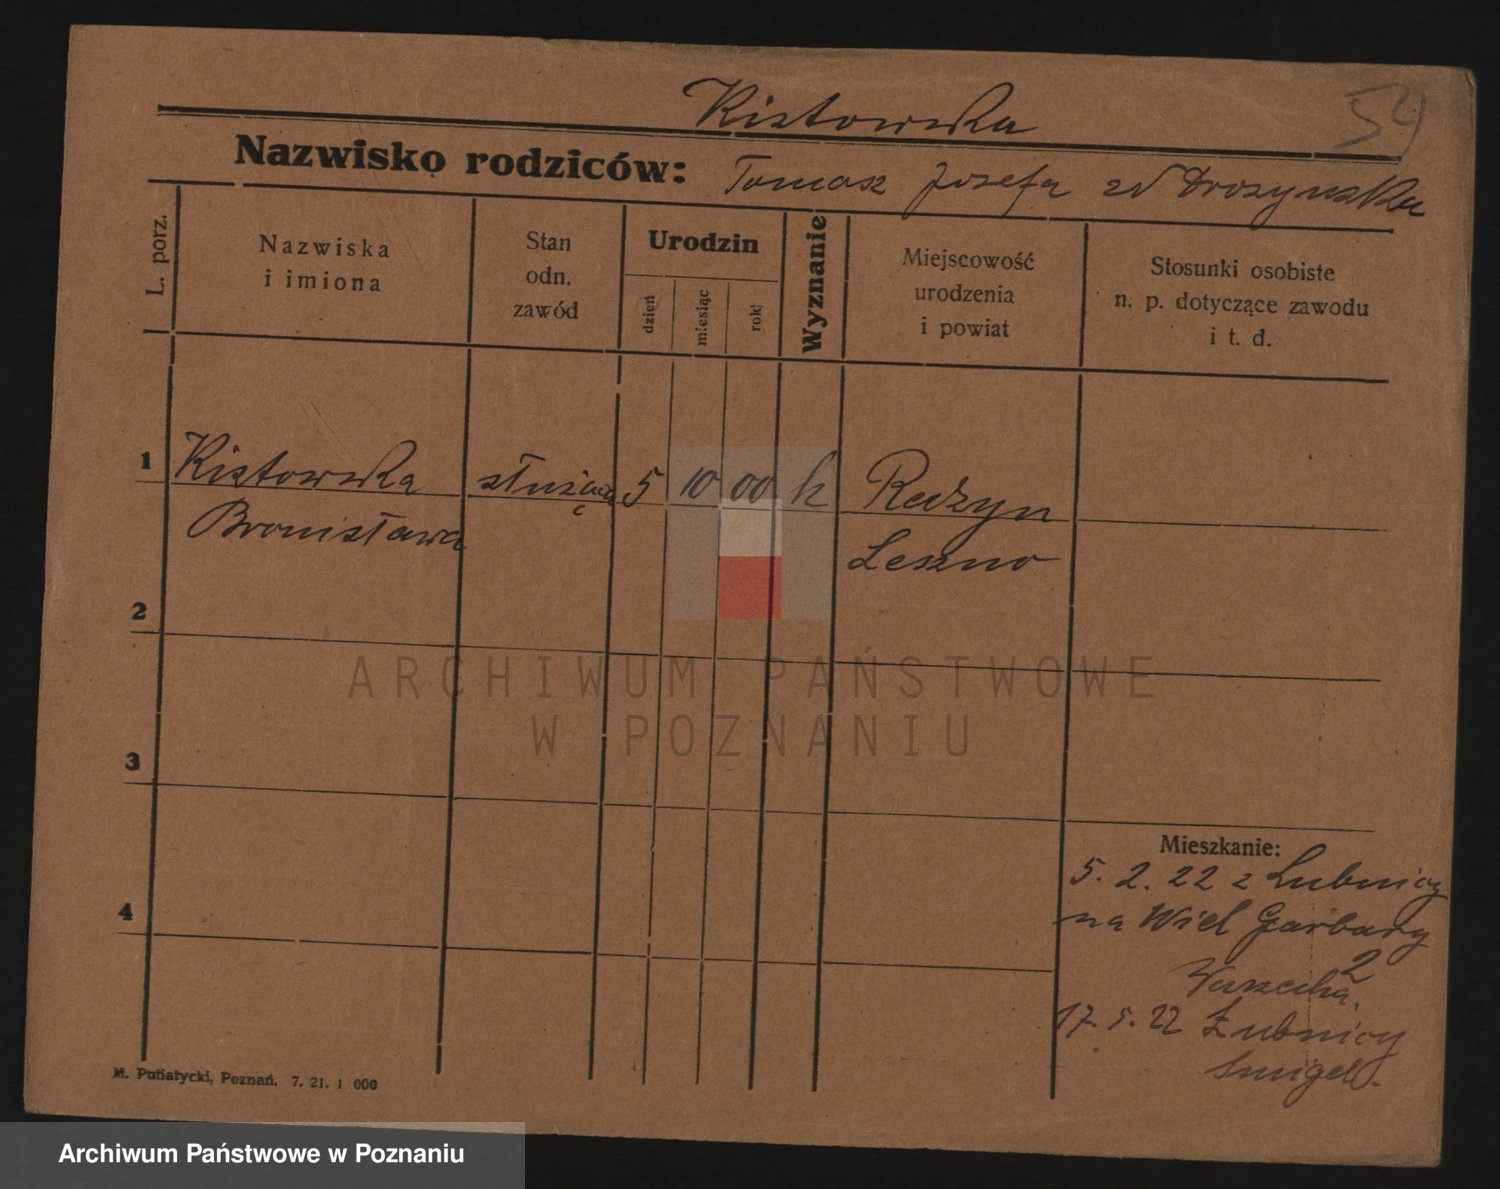 Kistowska
54
Nazwisko rodziców: Tomasz Józefa zd Drozynska
L. porz.
Nazwiska
i imiona
Stan
odn.
zawód
Urodzin
dzień
miesiąc
rok
Wyznanie
Miejscowość
urodzenia
i powiat
Stosunki osobiste
n. p. dotyczące zawodu
i t. d.
1 Kistowska służąca 5 10 00 k Radzyn
Bronisława Leszno
2
3
4
Mieszkanie:
5. 2. 22 z Łubnicy
na Wiel Garbary
2
17. 5. 22 Łubnicy
Smigel.
M. Putiatycki, Poznań. 7. 21. 1 000
ARCHIWUM PAŃSTWOWE
W POZNANIU
Archiwum Państwowe w Poznaniu